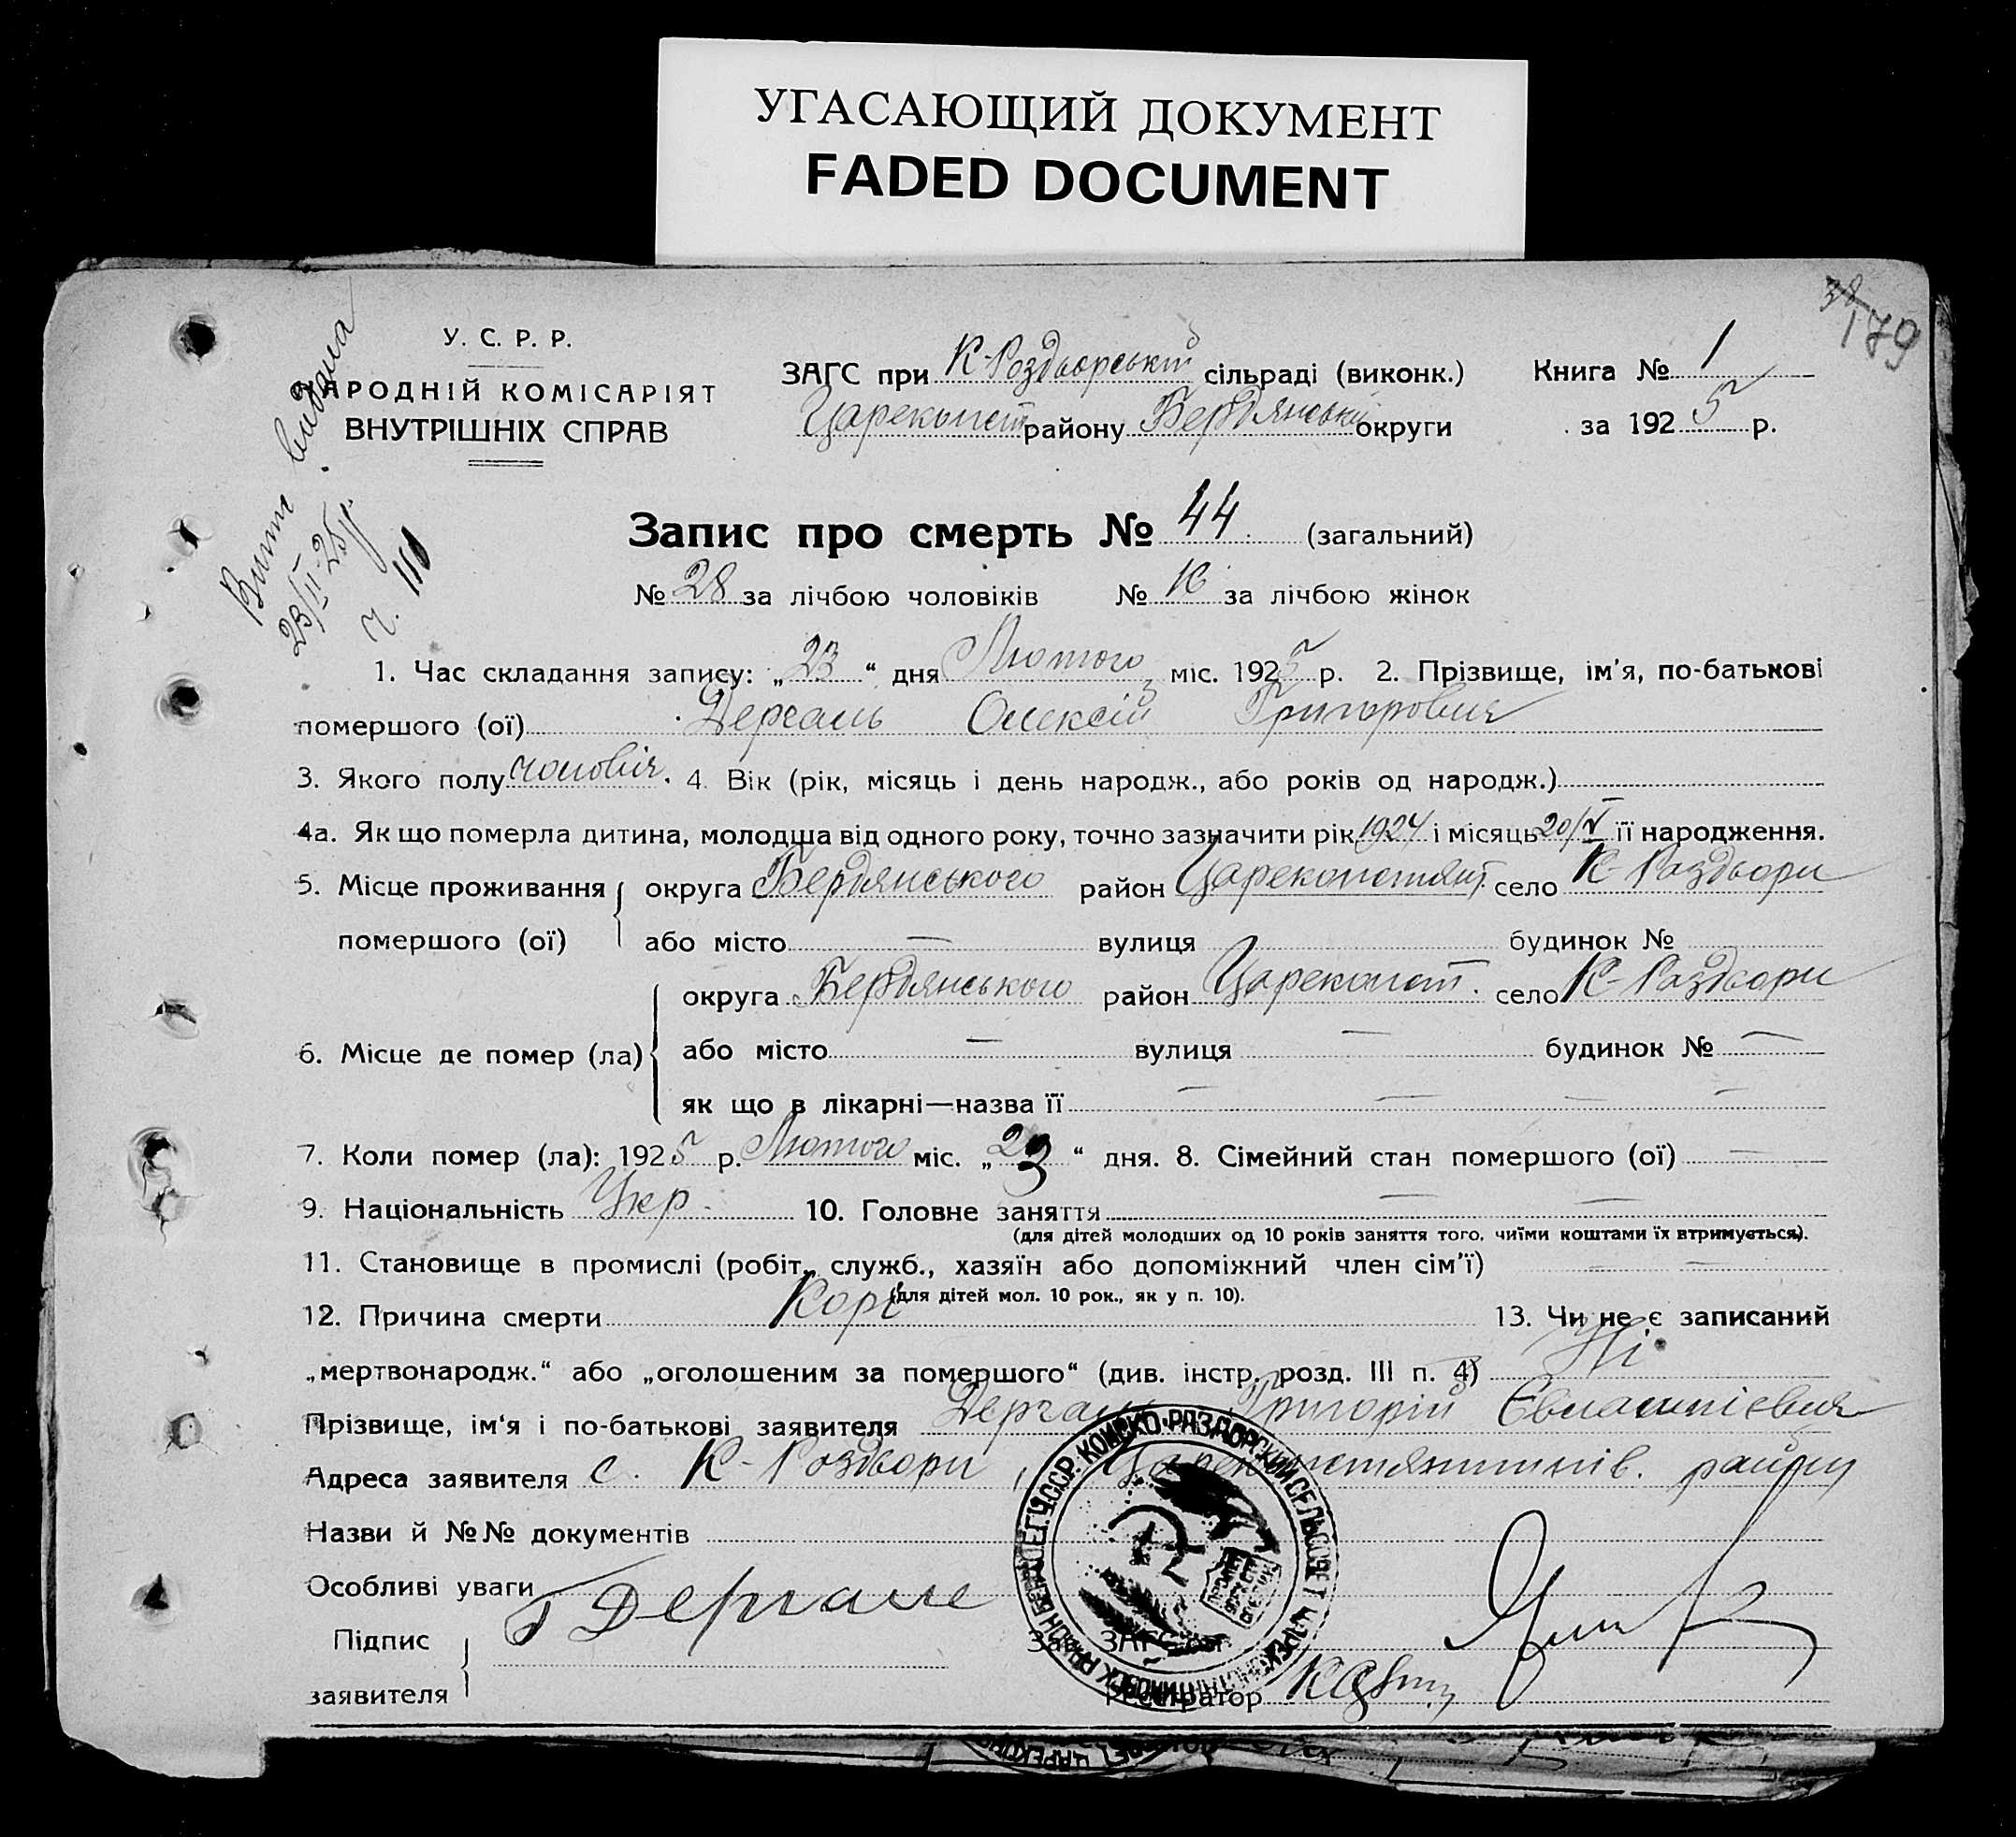 УГАСАЮЩИЙ ДОКУМЕНТ
FADED DOCUMENT
38
179
У. С. Р. Р.
НАРОДНІЙ КОМІСАРІЯТ
ВНУТРІШНІХ СПРАВ
Витг видана
23/II-25р.
ч. 111
ЗАГС при К-Роздьорській сільраді (виконк.) Книга № 1
Цареконст району Бердянської округи за 1925 р.
Запис про смерть № 44 (загальний)
№ 28 за лічбою чоловіків № 16 за лічбою жінок
1. Час складання запису: „23“ дня Лютого міс. 1925 р. 2. Прізвище, ім'я, по-батькові
помершого (ої) Дергаль Олексій Григорович
3. Якого полу чоловіч. 4. Вік (рік, місяць і день народж., або років од народж.)
4а. Як що померла дитина, молодша від одного року, точно зазначити рік 1924 і місяць 20/V її народження.
5. Місце проживання округа Бердянського район Цареконстянт. село К-Раздьори
помершого (ої) або місто — вулиця будинок №
округа Бердянського район Цареконст. село К-Раздьори
6. Місце де помер (ла) або місто — вулиця — будинок № —
як що в лікарні—назва її — — — —
7. Коли помер (ла): 1925 р. Лютого міс. „23“ дня. 8. Сімейний стан помершого (ої) —
9. Національність Укр. 10. Головне заняття — —
(для дітей молодших од 10 років заняття того, чиїми коштами їх втримується).
11. Становище в промислі (робіт., служб., хазяїн або допоміжний член сім'ї) — —
(для дітей мол. 10 рок., як у п. 10).
12. Причина смерти Корі 13. Чи не є записаний
„мертвонародж.“ або „оголошеним за помершого“ (див. інстр. розд. III п. 4) Ні
Прізвище, ім'я і по-батькові заявителя Дергаль Григорій
Адреса заявителя с. К-Роздьори, Цареконстянтинів. району
Назви й №№ документів
Особливі уваги
Підпис Дергаль
заявителя
Зав. ЗАГС'ом
Реєстратор
У.С.С.Р. КОЙСКО-РАЗДОРСКИЙ СЕЛЬСОВЕТ ЦАРЕКОНСТАНТИНОВСК. РАЙОН